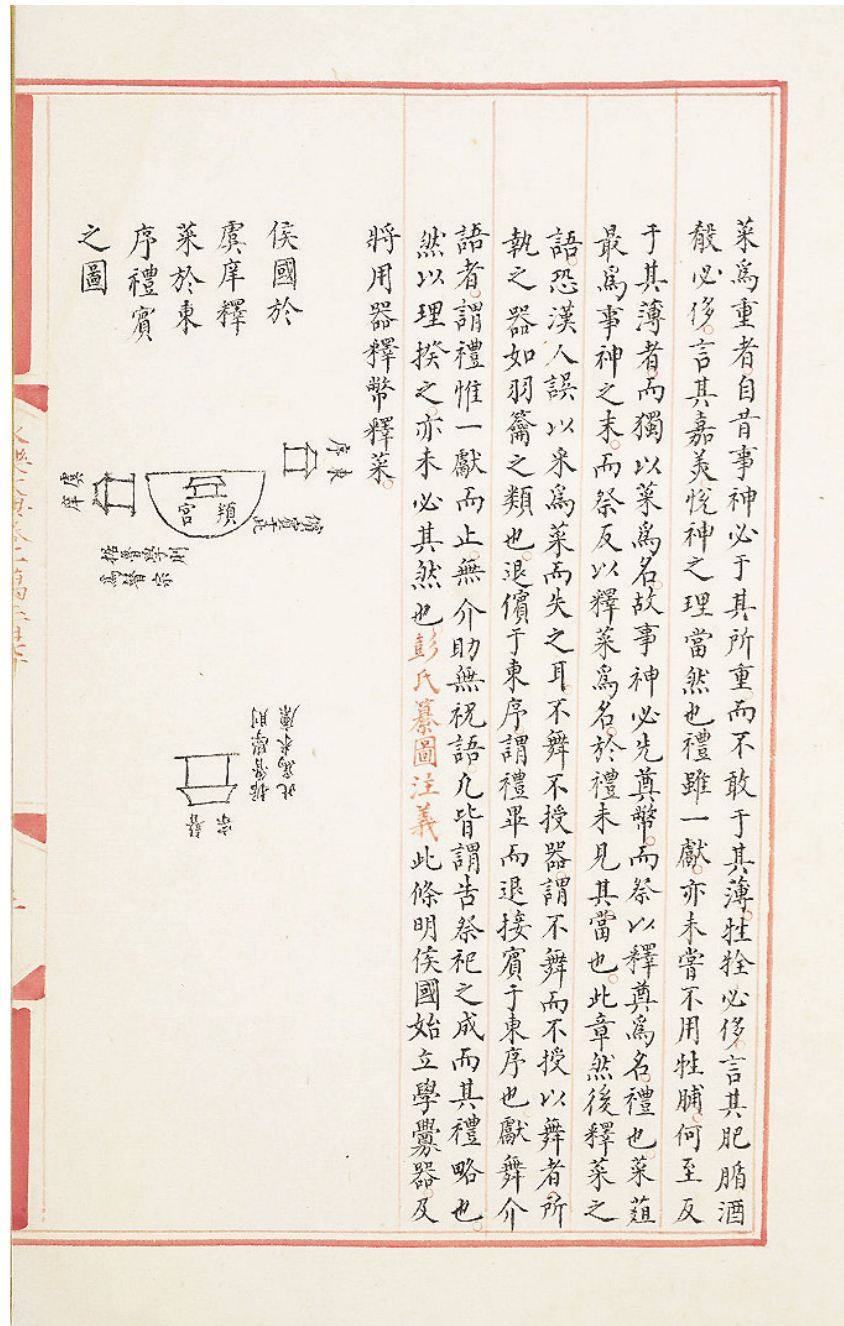 菜爲重者自昔事神必于其所重而不敢于其薄牲牷必侈言其肥腯酒
殽必侈言其嘉美悅神之理當然也禮雖一獻亦未嘗不用牲脯何至反
于其薄者而獨以菜爲名故事神必先奠幣而祭以釋奠爲名禮也菜葅
最爲事神之末而祭反以釋菜爲名於禮未見其當也此章然後釋菜之
語恐漢人誤以采爲菜而失之耳不舞不授器謂不舞而不授以舞者所
執之器如羽籥之類也退儐于東序謂禮畢而退接賓于東序也獻舞介
語者謂禮惟一獻而止無介助無祝語凡皆謂告祭祀之成而其禮略也
然以理揆之亦未必其然也彭氏纂圖注義此條明侯國始立學釁器及
將用器釋幣釋菜
侯國於
虞庠釋
菜於東
序禮賓
之圖
東序
頖宮
儐賓于此
虞庠
據魯學則
爲瞽宗
此爲米廩
據魯學則
瞽宗